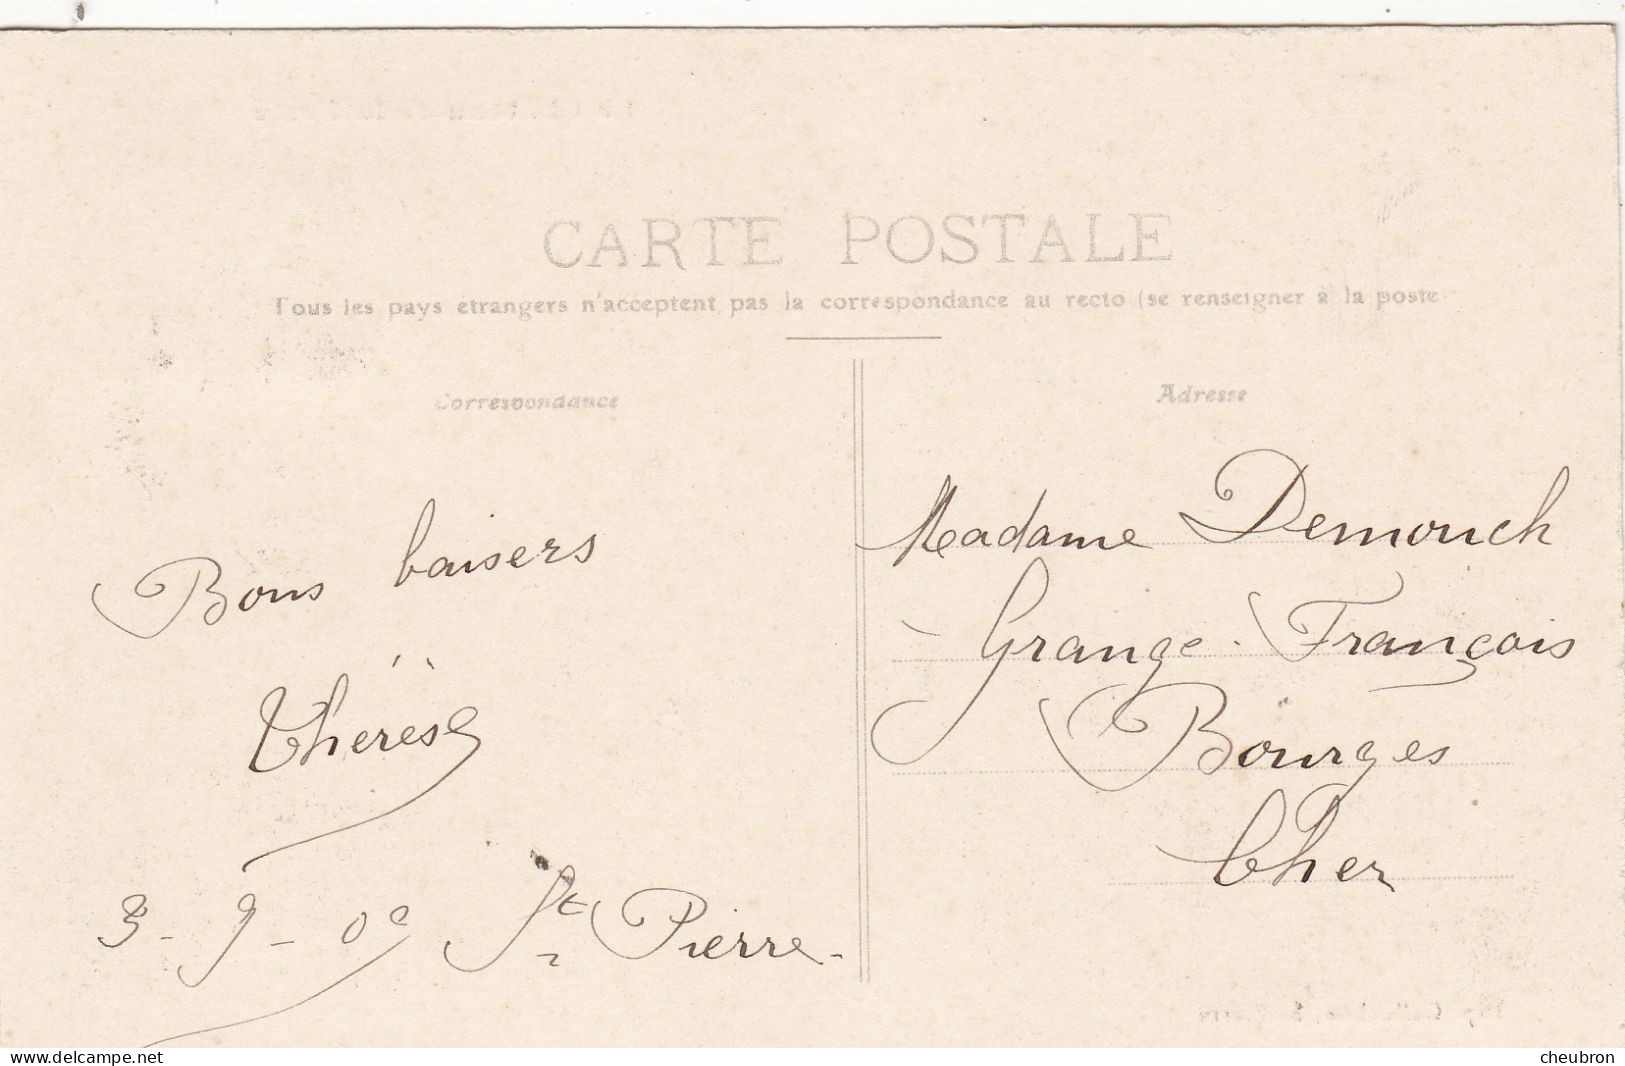 CARTE POSTALE
Tous les pays étrangers n'acceptent pas la correspondance au recto (se renseigner à la poste
Correspondance
Bons baisers
Thérèse
3 - 9 - 09 St Pierre.
Adresse
Madame Demouch
Grange-François
Bourges
Cher
delcampe.net
cheubron